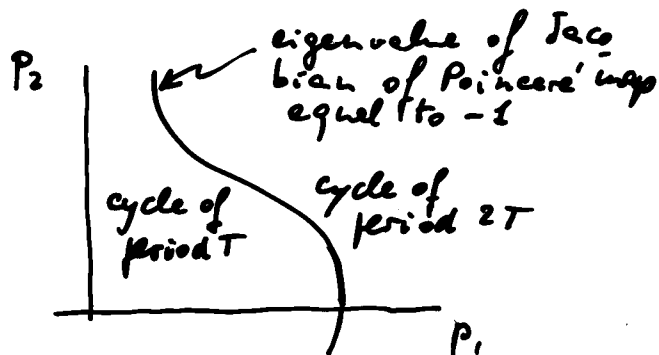 eigenvalue of Jaco
bian of Poincaré map
equal to -1
P2
cycle of
period T
cycle of
period 2T
P1